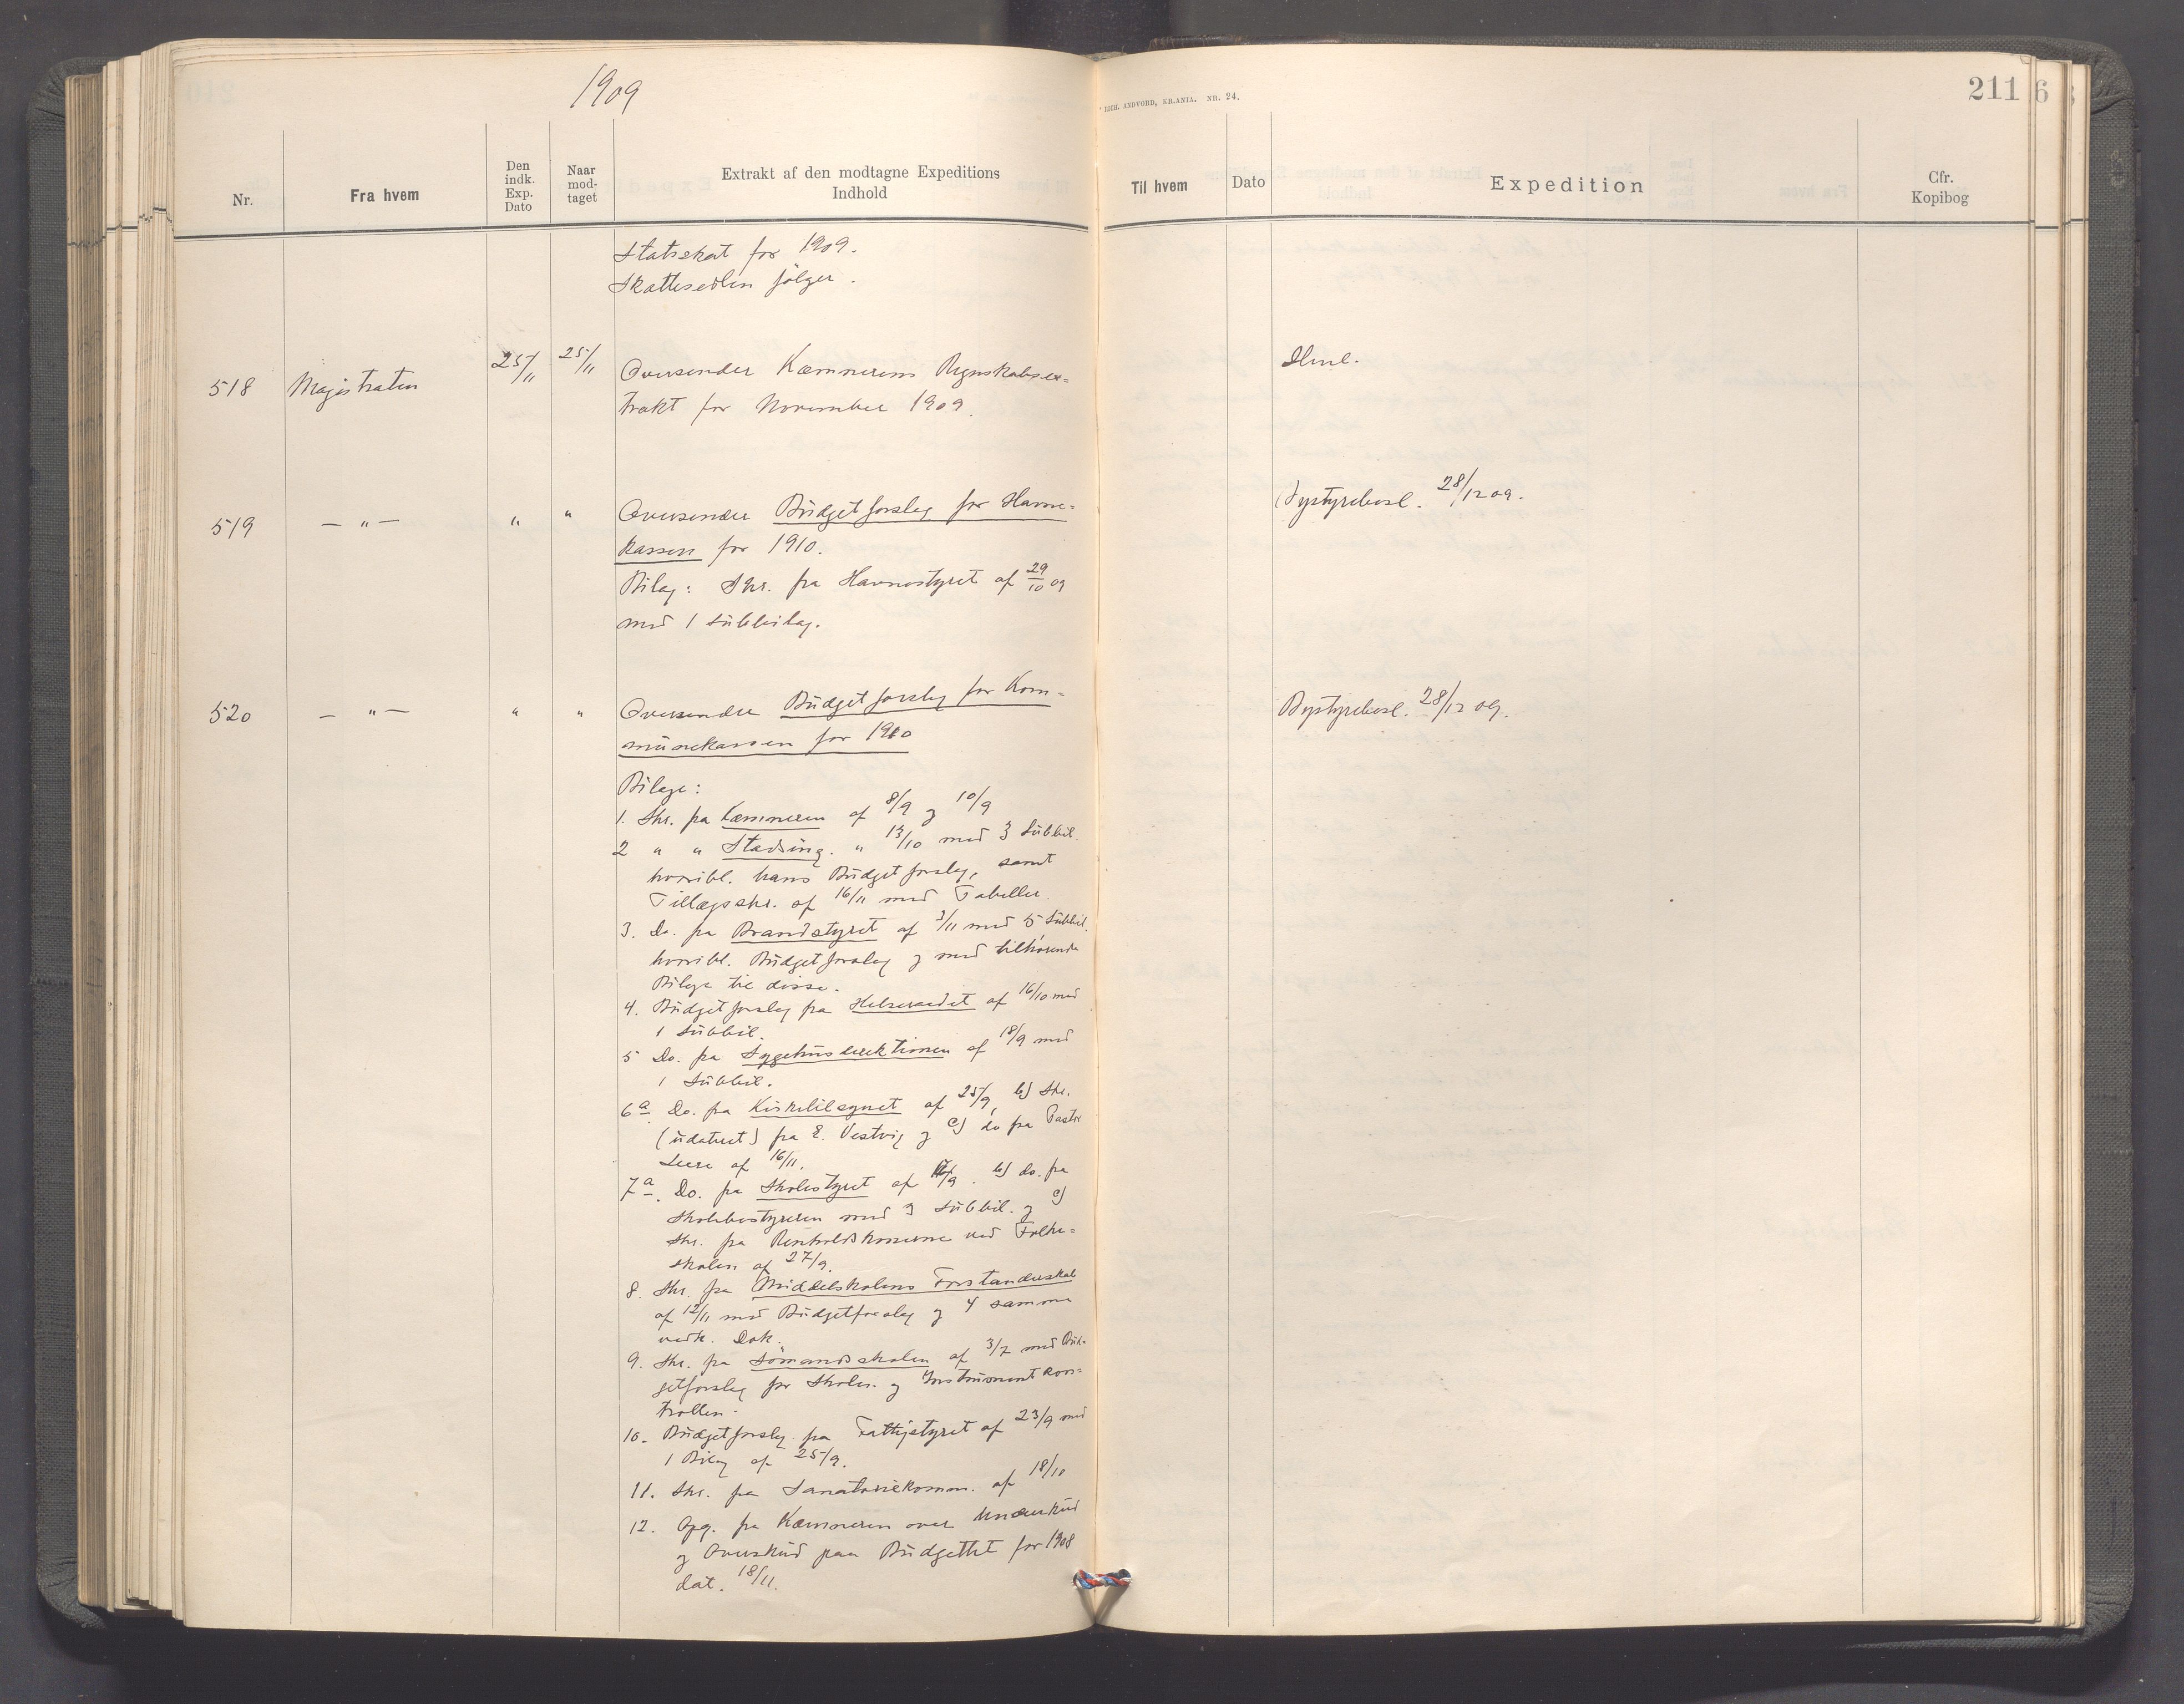 1909
RICH. ANDVORD, KR.ANIA. NR. 24.
211
6
Nr.
Fra hvem
Den indk. Exp. Dato
Naar mod- taget
Extrakt af den modtagne Expeditions Indhold
Til hvem
Dato
Expedition
Cfr. Kopibog
Statsskat for 1909.
Skattesedlen følger.
518 Magistraten 25/11 25/11 Oversender Kæmnerens Regnskabsex-
trakt for November 1909.
519 — " — " " Oversender Budgetforslag for Havne-
kassen for 1910.
Bilag: Skr. fra Havnestyret af 29/10 09
med 1 Subbilag.
Bystyrebesl. 28/12 09.
520 — " — " " Oversender Budgetforslag for Kom-
munekassen for 1910
Bystyrebesl. 28/12 09.
Bilage:
1. Skr. fra Kæmneren af 8/9 og 10/9
2 " " Stadsing. " 13/10 med 3 Subbil.
hvoribl. hans Budgetforslag, samt
Tillægsskr. af 16/11 med Tabeller.
3. Do. fra Brandstyret af 3/11 med 5 Subbil.
hvoribl. Budgetforslag og med tilhørende
Bilage til disse.
4. Budgetforslag fra Helseraadet af 16/10 med
1 Subbil.
5 Do. fra Sygehusdirektionen af 18/9 med
1 Subbil.
6a Do. fra Kirketilsynet af 25/9, b) Skr.
(udateret) fra E. Vestvig og c) do fra Pastor
af 16/11.
7a. Do. fra Skolestyret af /9. b) do. fra
Skolebestyreren med 3 Subbil. og c)
Skr. fra Renholdskonerne ved Folke-
skolen af 27/9.
8. Skr. fra Middelskolens Forstanderskab
af 12/11 med Budgetforslag og 4 samme
vedk. Dok.
9. Skr. fra Sømandsskolen af 3/7 med Bud-
getforslag for Skolen og Instrumentkon-
trollen.
10. Budgetforslag fra Fattigstyret af 23/9 med
1 Bilag af 25/9.
11. Skr. fra Sanatoriekomm. af 18/10
12. Opg. fra Kæmneren over Underskud
og Overskud paa Budgettet for 1908
dat. 18/11.